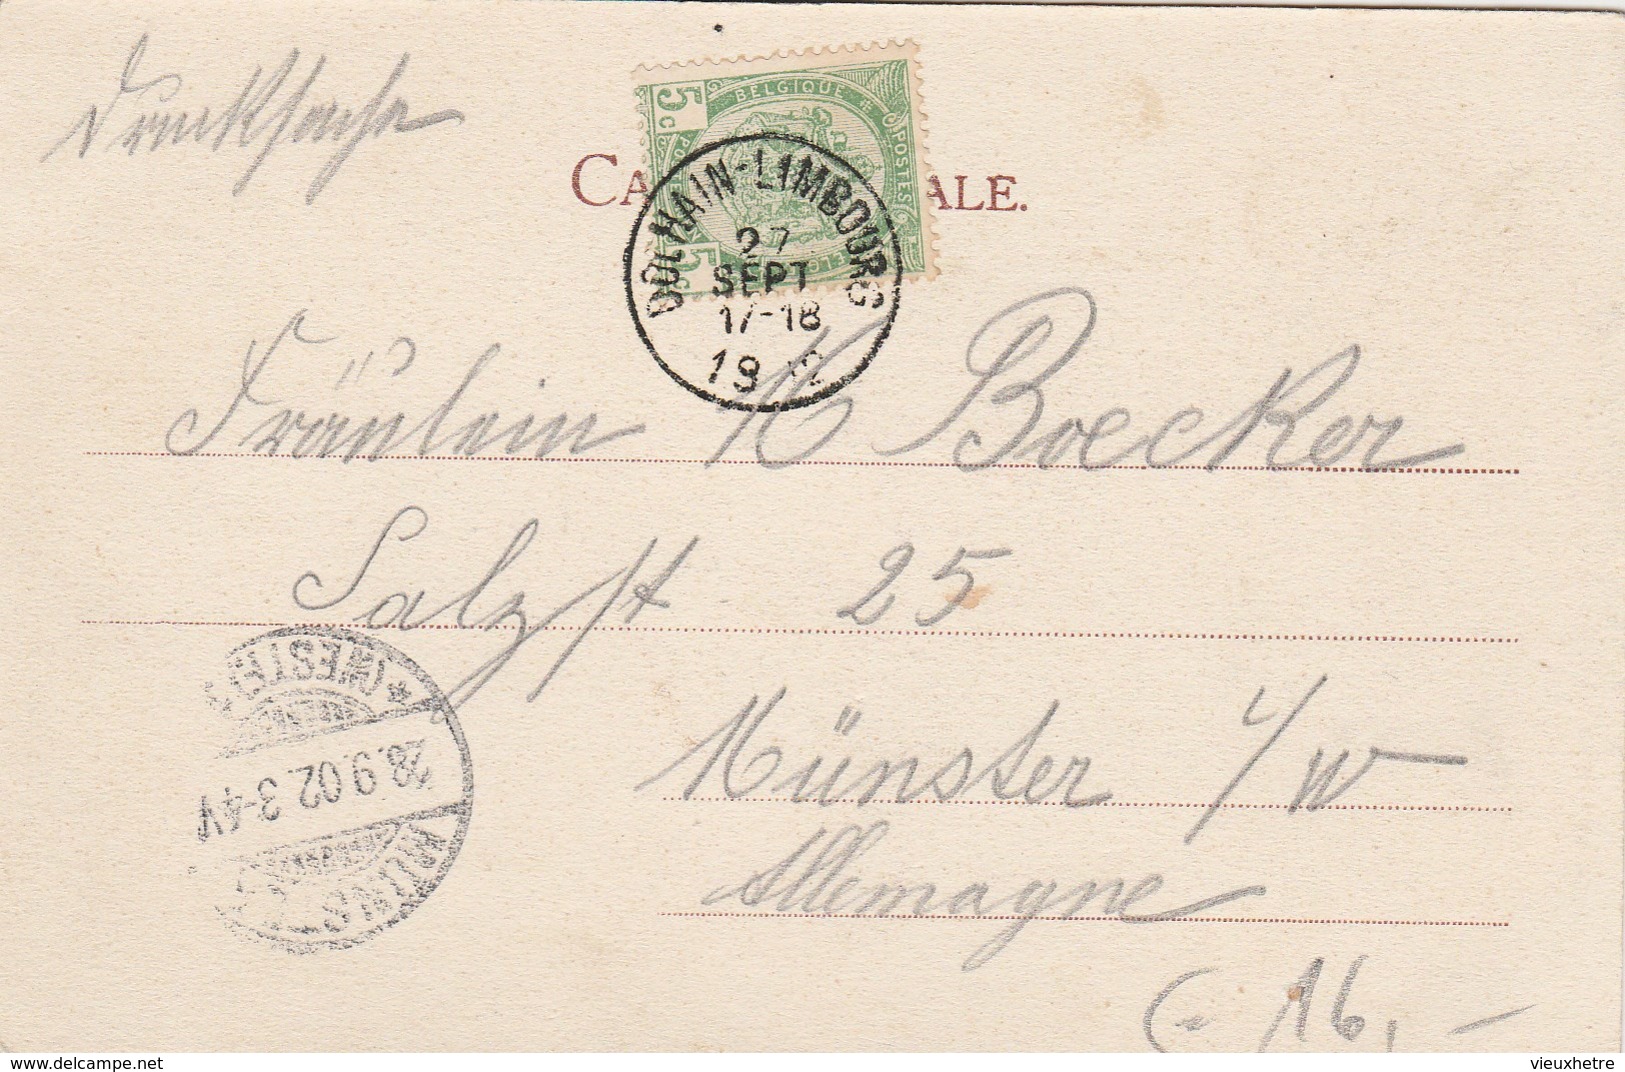 Drucksache
BELGIQUE
POSTES
5 c
5 c
CA ALE.
DOLHAIN-LIMBOURG
27
SEPT
17-18
19 2
Fräulein M Boecker
Salzst 25
Münster i/W
Allemagne
(WESTF) *
28.9.02.3-4V
MÜNS
16,-
vieuxhetre